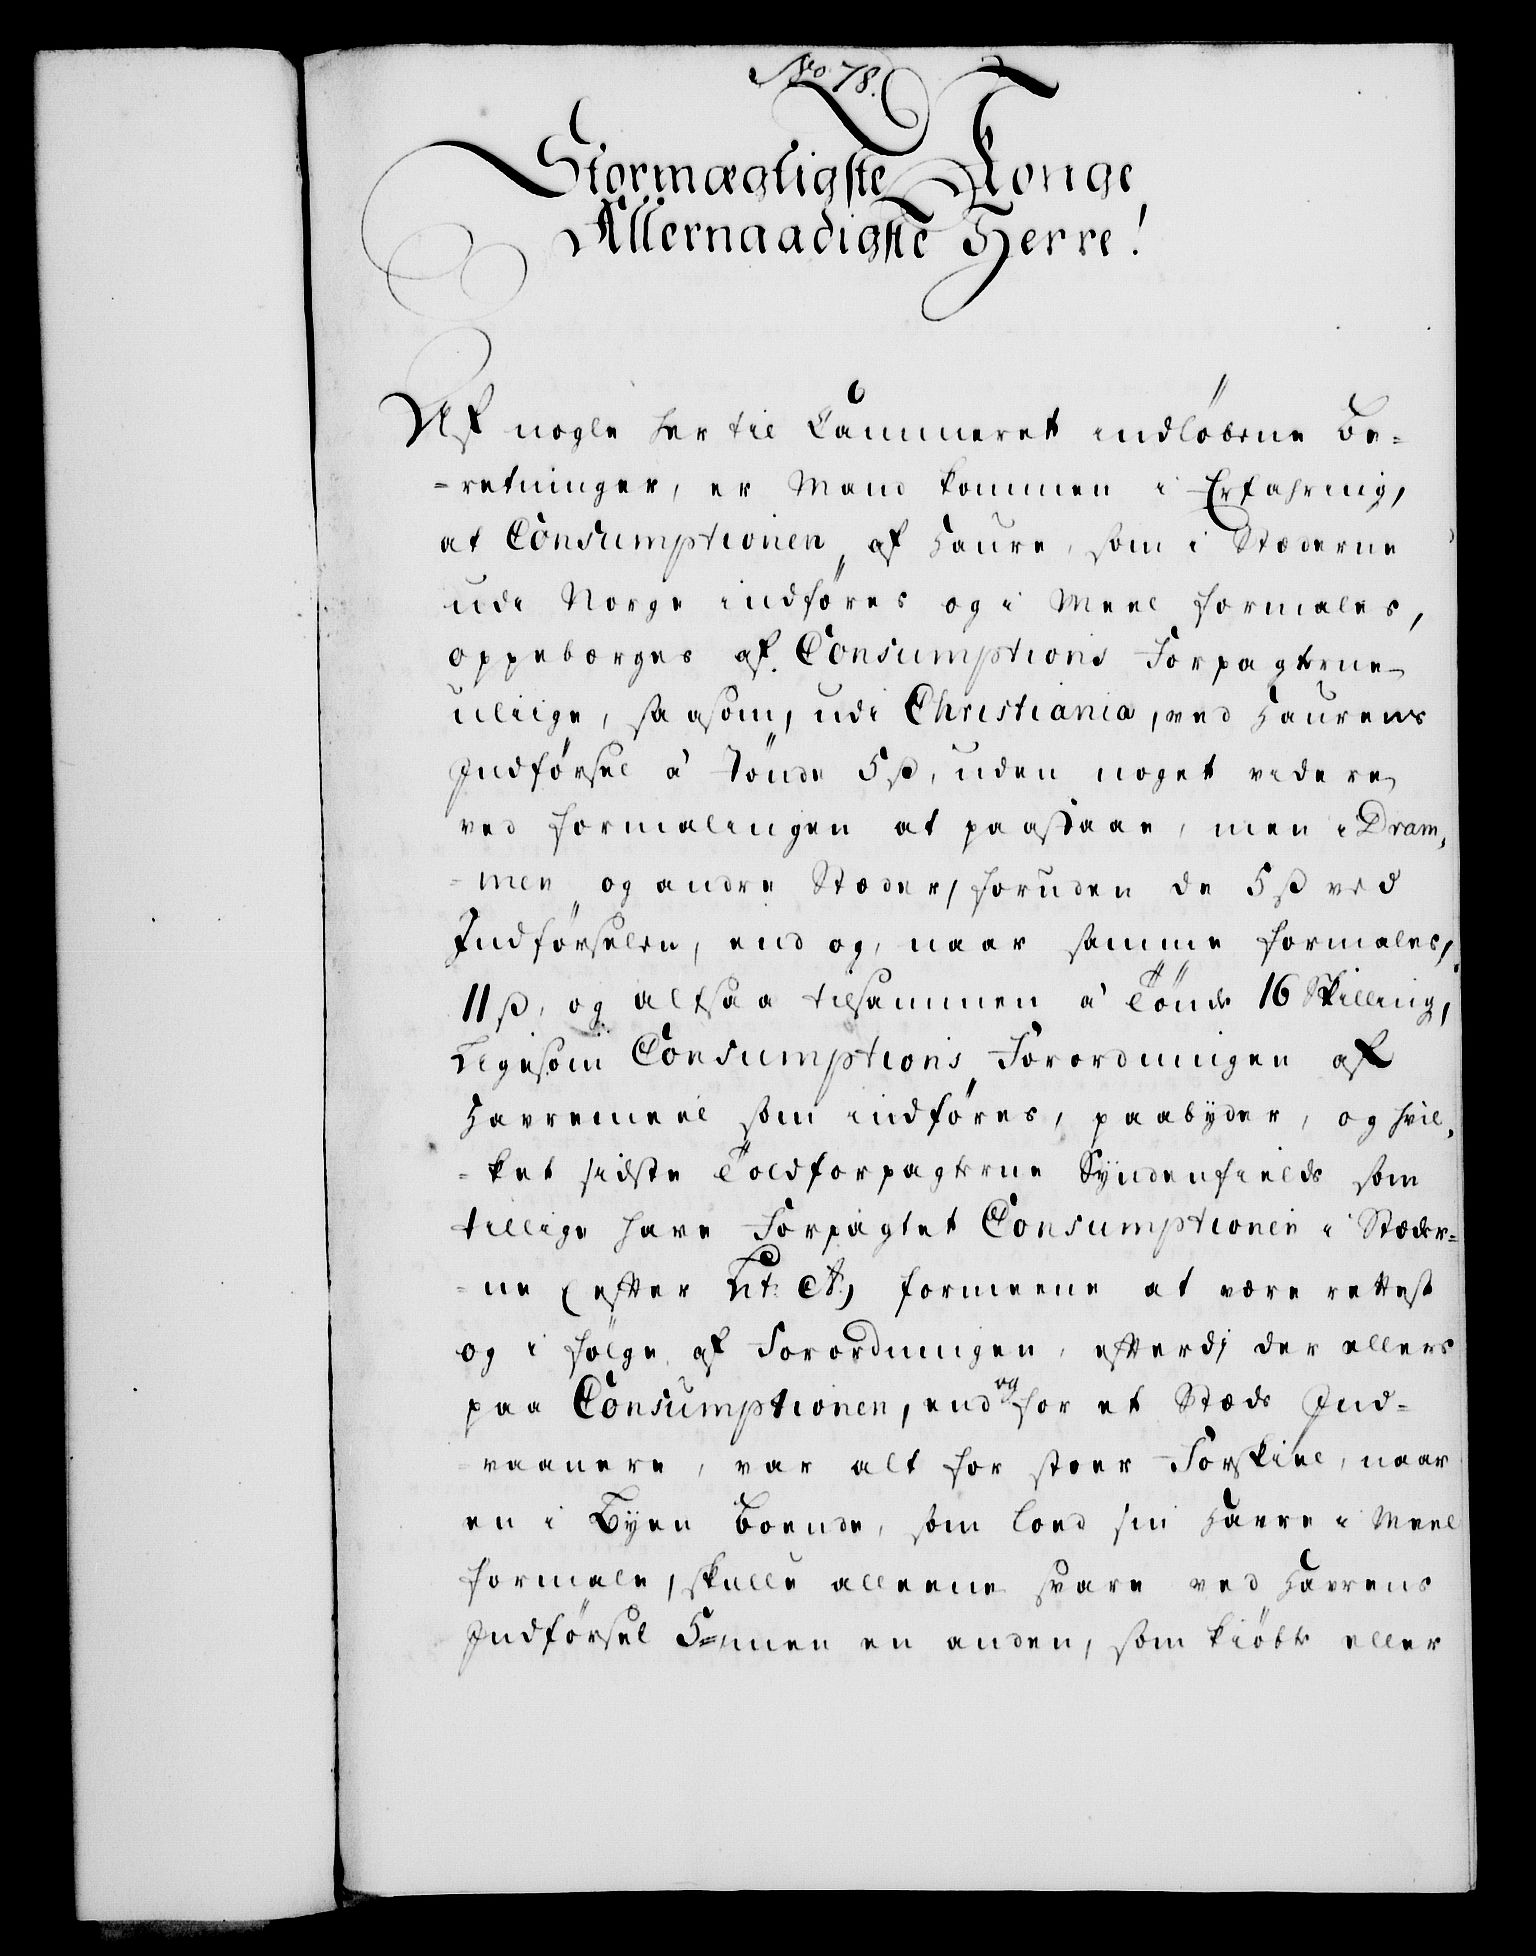 No 78.
Stormægtigste Konge
Allernaadigste Herre!
Af nogle her til Cammeret indløbene Be-
-retninger, er Mand kommen i Erfahring,
at Consumptionen af Haure, som i Stæderne
udi Norge indføres og i Meel formales,
oppebørges af Consumptions Forpagterne
uliige, saasom, udi Christiania, ved Haurens
Indførsel à Tönde 5 ß, uden noget videre
ved formalingen at paastaae, men i Dram,
-men og andre Stæder, foruden de 5 ß ved
Indførselen, end og, naar samme formales,
11 ß, og altsaa tilsammen à Tönde 16 Skilling,
Ligesom Consumptions Forordningen af
Havremeel som indføres, paabÿder, og hvil,
-ket sidste Toldforpagterne Sÿndenfields som
tillige have Forpagtet Consumptionen i Stæder-
-ne (efter Lit: A) formeene at være rettest
og i følge af Forordningen, efterdj der ellers
paa Consumptionen, end og for et Stæds Ind-
-vaanere, var alt for stoer Forskiel, naar
en i Bÿen Boende, som loed sin Havre i Meel
formale, skulle alleene svare ved Havrens
Indførsel 5 ß, men en anden, som kiøbte eller